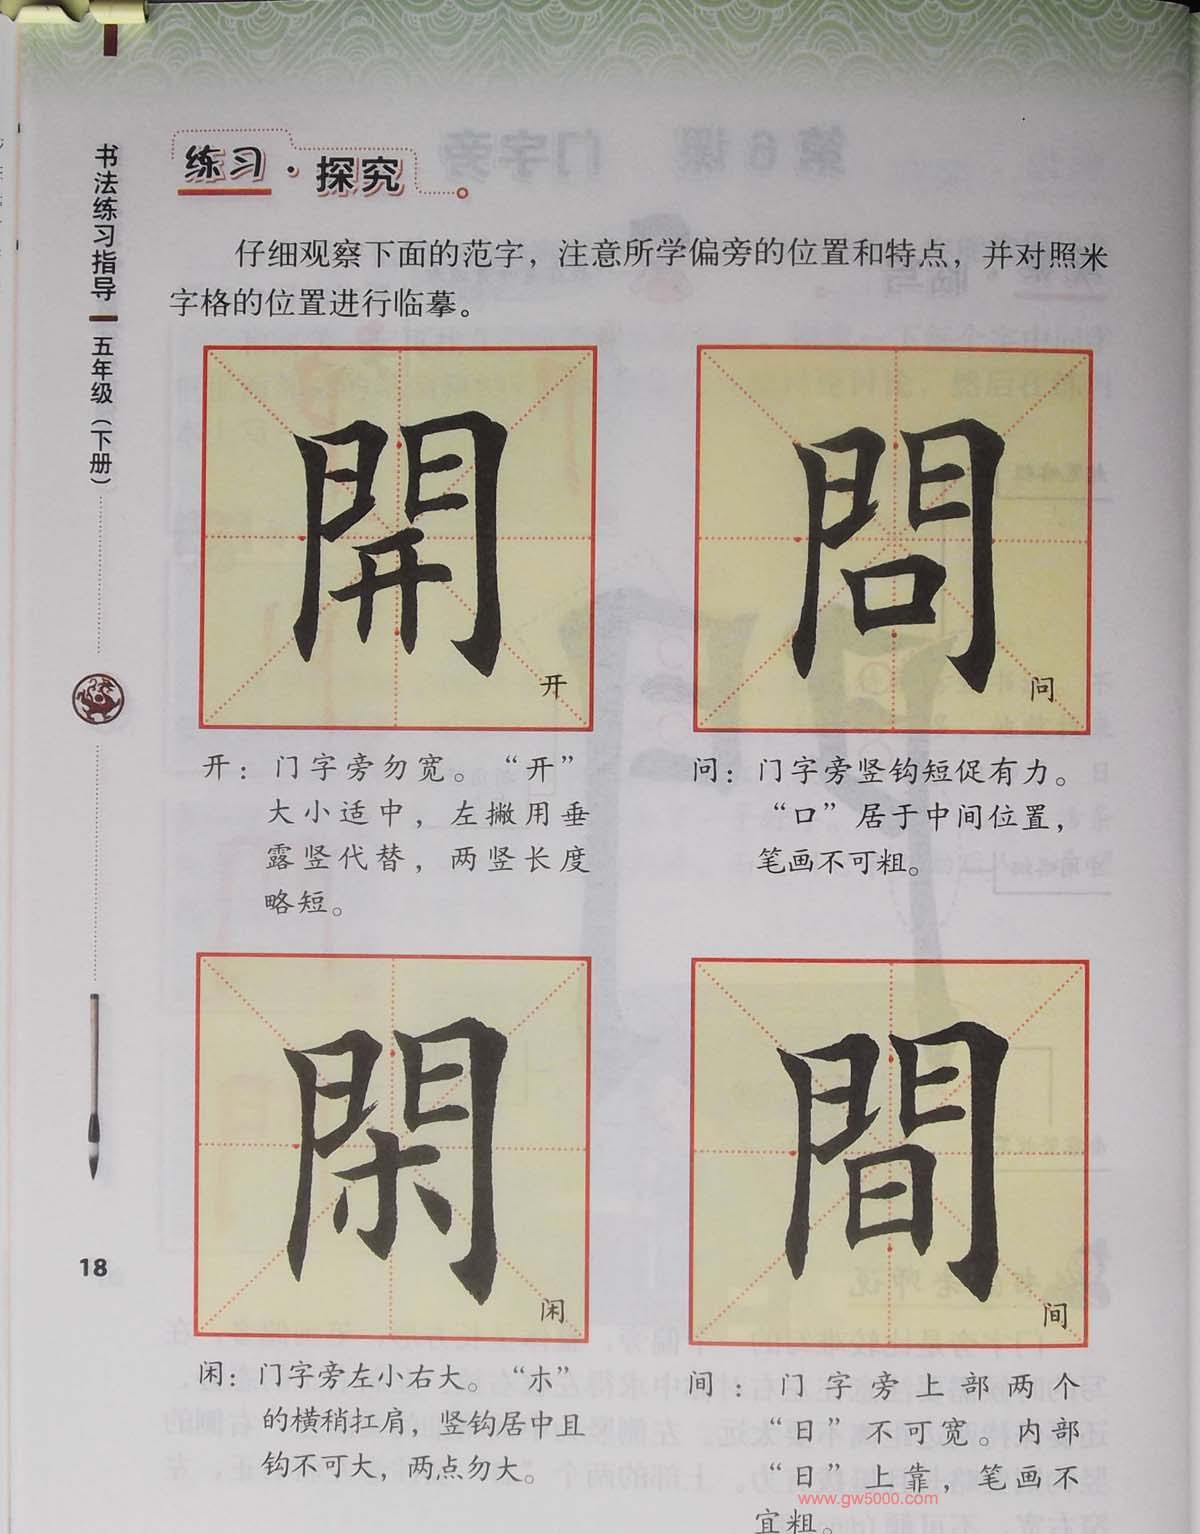 书法练习指导
五年级（下册）
练习·探究
仔细观察下面的范字，注意所学偏旁的位置和特点，并对照米
字格的位置进行临摹。
開
开
問
问
开：门字旁勿宽。“开”
大小适中，左撇用垂
露竖代替，两竖长度
略短。
问：门字旁竖钩短促有力。
“口”居于中间位置，
笔画不可粗。
閑
闲
間
间
闲：门字旁左小右大。“木”
的横稍扛肩，竖钩居中且
钩不可大，两点勿大。
间：门字旁上部两个
“日”不可宽。内部
“日”上靠，笔画不
宜粗。
18
www.gw5000.com